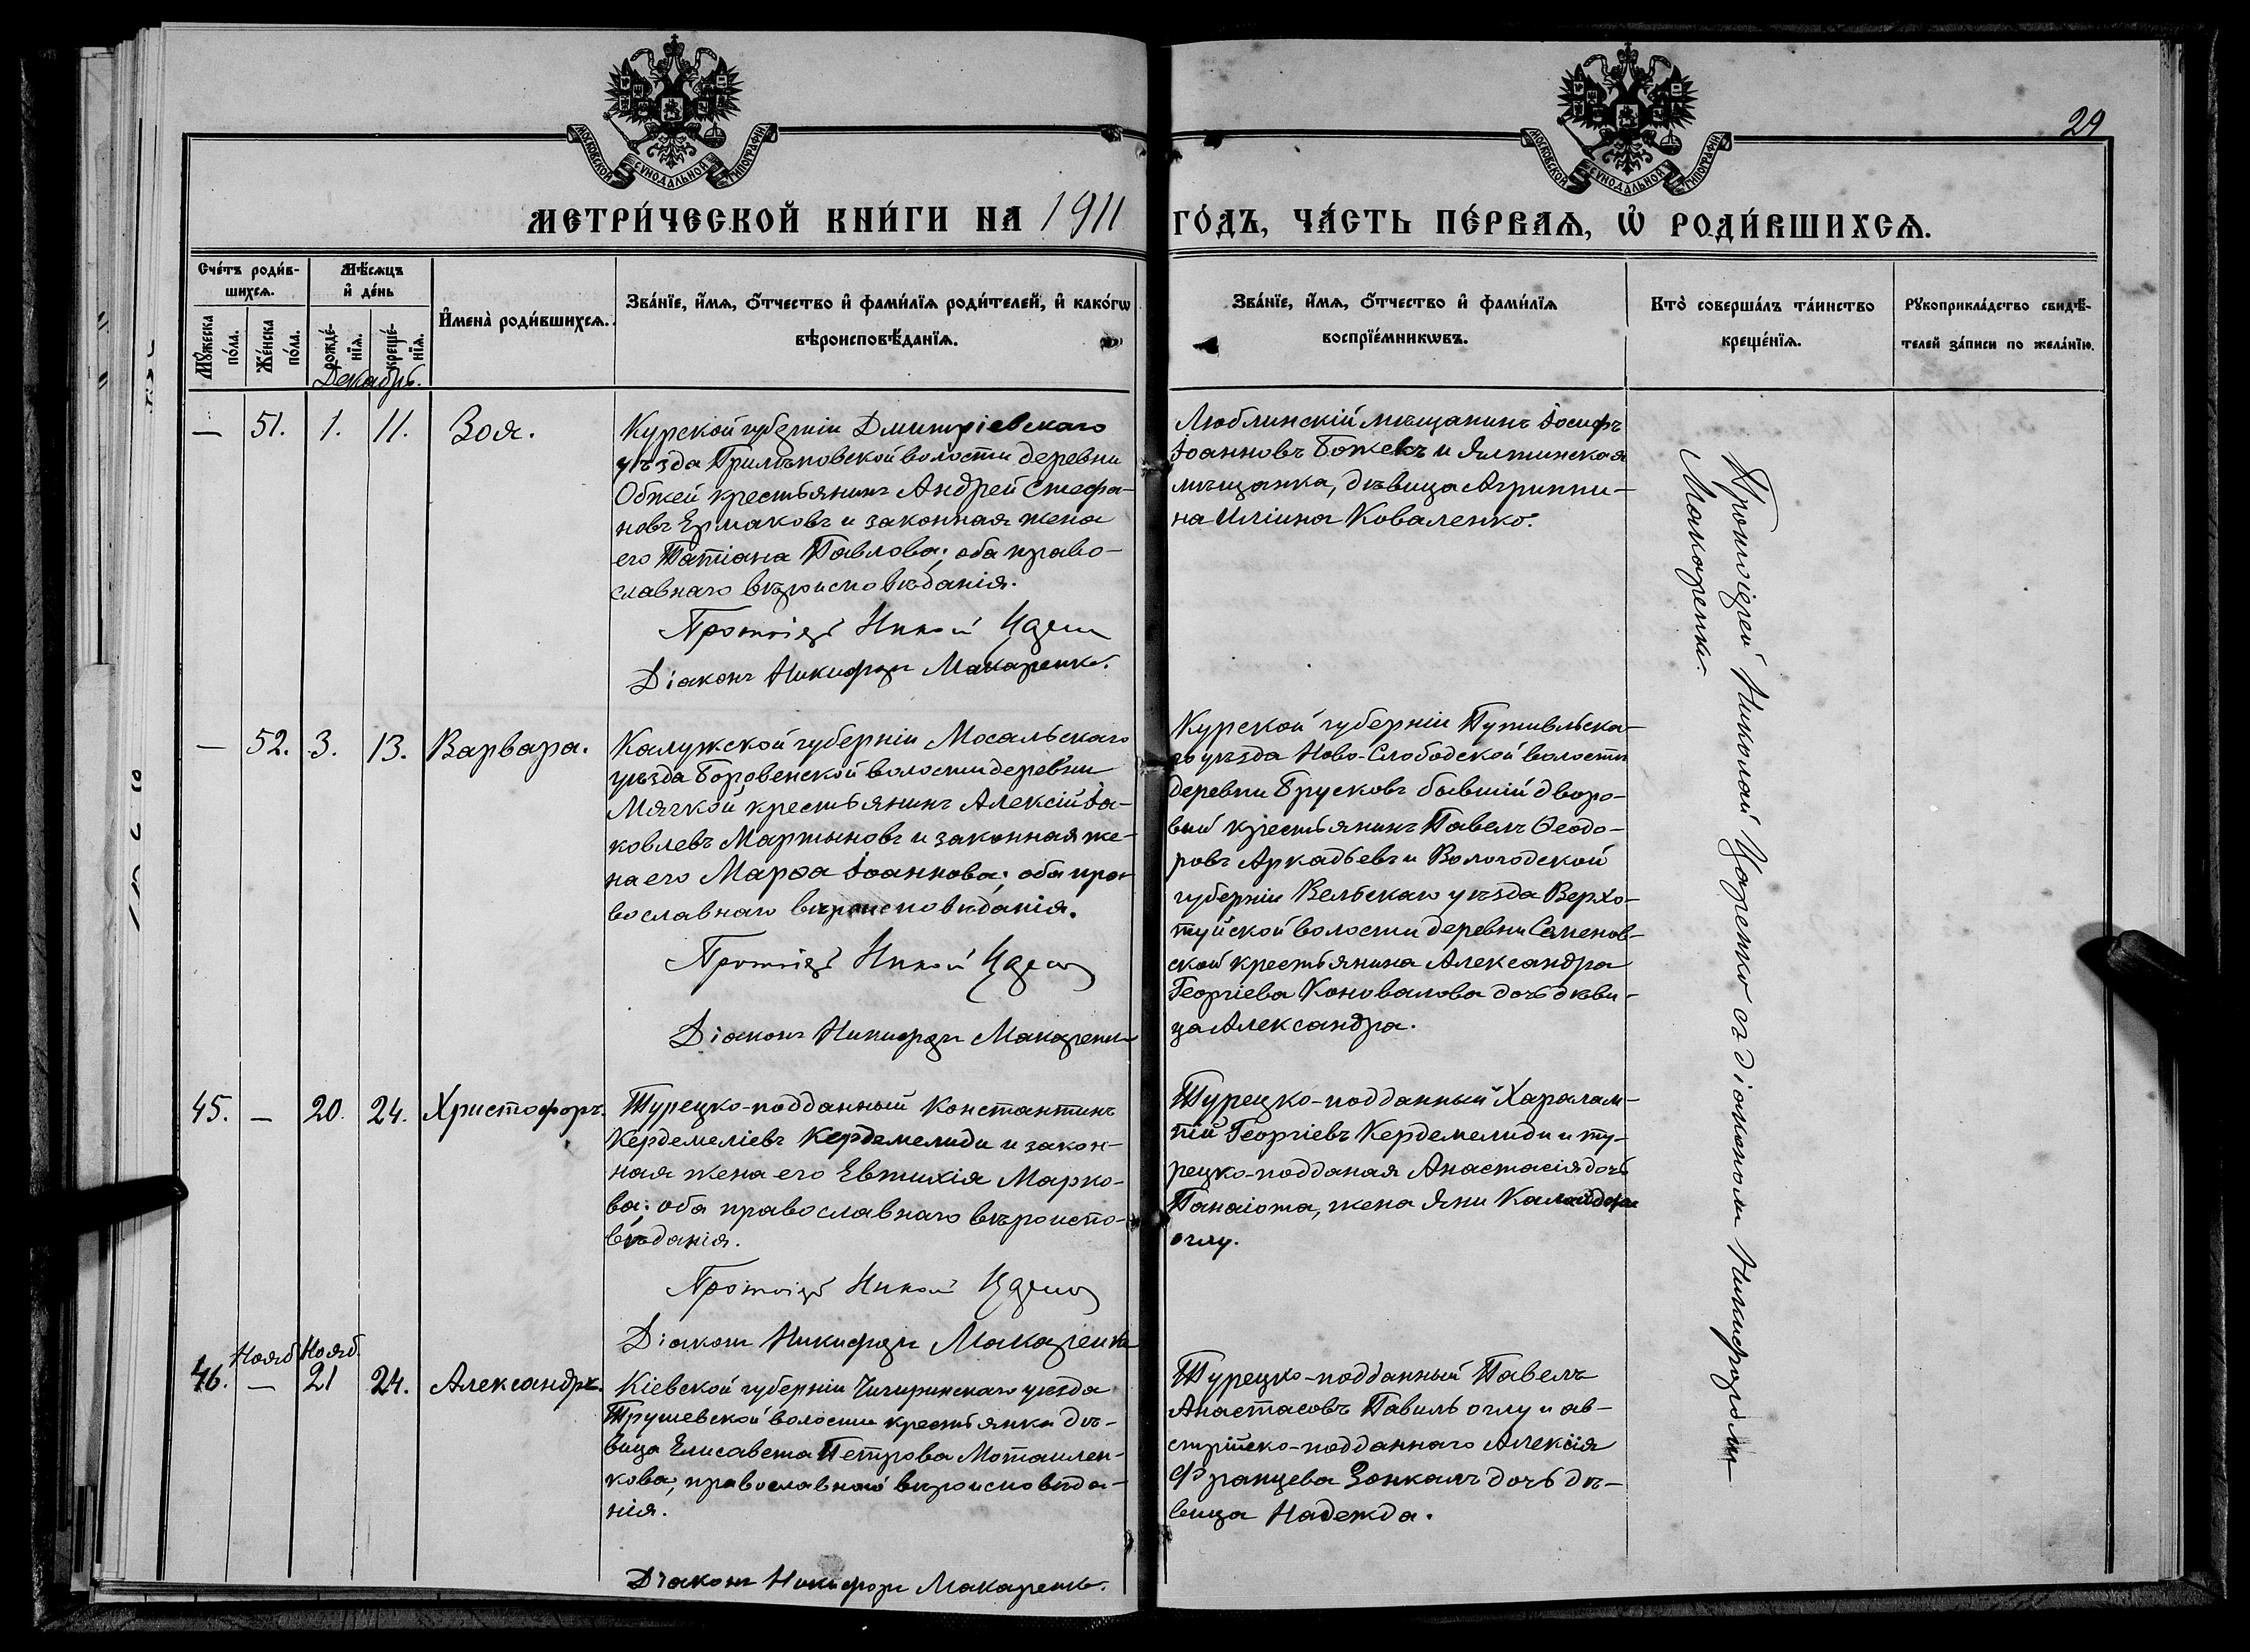 29
МОСКОВСКОЙ СУНОДАЛЬНОЙ ТИПОГРАФІИ
МОСКОВСКОЙ СУНОДАЛЬНОЙ ТИПОГРАФІИ
МЕТРИ́ЧЕСКОЙ КНИ́ГИ НА 1911 ГО́ДЪ, ЧА́СТЬ ПЕ́РВАѦ, Ѡ҆ РОДИ́ВШИХСѦ.
Сче́тъ роди́в-
шихсѧ.
Мꙋ́жеска по́ла.
Же́нска по́ла.
Мѣ́сѧцъ
и҆ де́нь
рожде́-
нїѧ.
креще́-
нїѧ.
И҆мена̀ роди́вшихсѧ.
Зва́нїе, и҆́мѧ, ѻ҆́тчество и҆ фами́лїѧ роди́телей, и҆ како́гѡ
вѣроисповѣ́данїѧ.
Зва́нїе, и҆́мѧ, ѻ҆́тчество и҆ фами́лїѧ
воспрїе́мникѡвъ.
Кто̀ соверша́лъ та́инство
креще́нїѧ.
Рꙋкоприкла́дство свидѣ́-
телей за́писи по жела́нїю.
Декабрь.
— 51. 1. 11. Зоя.
Курской губерніи Дмитріевскаго
уѣзда Прилѣповской волости деревни
Обжей крестьянинъ Андрей Стефа-
новъ Ермаковъ и законная жена
его Татіана Павлова; оба право-
славнаго вѣроисповѣданія.
Діаконъ Никифоръ Макаренко.
Люблинскій мѣщанинъ Іосифъ
Іоанновъ Божекъ и Ялтинская
мѣщанка, дѣвица Агриппи-
на Иліина Коваленко.
Протоіерей Николай Царенко съ діакономъ Никифоромъ
Макаренко.
— 52. 3. 13. Варвара.
Калужской губерніи Мосальскаго
уѣзда Боровенской волости деревни
Мягкой крестьянинъ Алексій Іа-
ковлевъ Мартыновъ и законная же-
на его Марѳа Іоаннова; оба пра-
вославнаго вѣроисповѣданія.
Діаконъ Никифоръ Макаренко
Курской губерніи Путивльска-
го уѣзда Ново-Слободской волости
деревни Брусковъ бывшій дворо-
вый крестьянинъ Павелъ Ѳеодо-
ровъ Аркадьевъ и Вологодской
губерніи Вельскаго уѣзда Верхо-
туйской волости деревни Семенов-
ской крестьянина Александра
Георгіева Коновалова дочь дѣви-
ца Александра.
45. — 20. 24. Христофоръ.
Турецко-подданный Константинъ
Кердемеліевъ Кердемелиди и закон-
ная жена его Евтихія Марко-
ва; оба православнаго вѣроиспо-
вѣданія.
Діаконъ Никифоръ Макаренко
Турецко-подданный Харалам-
пій Георгіевъ Кердемелиди и ту-
рецко-подданая Анастасія дочь
Панаіота, жена Яни
оглу.
Нояб. Нояб.
46. — 21 24. Александръ.
Кіевской губерніи Чигиринскаго уѣзда
Трушевской волости крестьянка дѣ-
вица Елисавета Петрова Мотаилен-
кова, православнаго вѣроисповѣда-
нія.
Діаконъ Никифоръ Макаренко.
Турецко-подданный Павелъ
Анастасовъ Павиль оглу и ав-
стрійско-подданнаго Алексія
Францева Зонкалъ дочь дѣ-
вица Надежда.